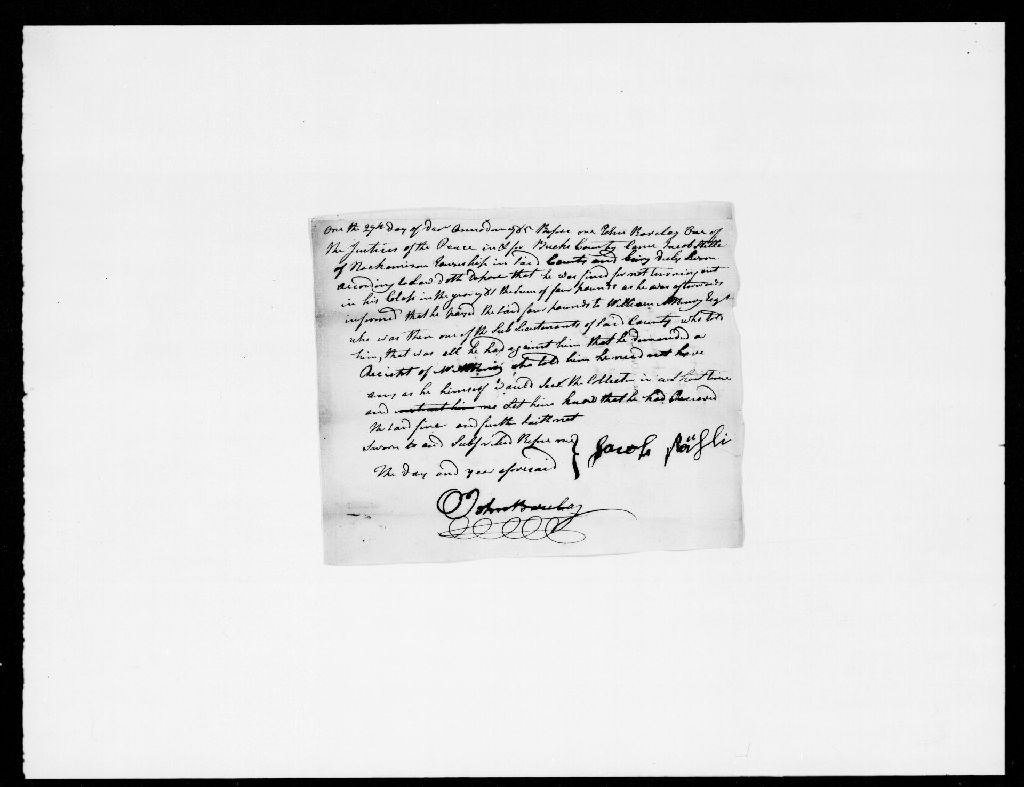 One the 27th Day of Anno Dom 1785 Before me John Barclay One of
the Justices of the Peace in & for Bucks County Came Jacob
of Nockamixon Township in said County and being Duly Sworn
according to Law doth Depose that he was fined for not turning out
in his Class in the year 1781 the sum of four pounds as he was afterwards
informed that he payed the said four pounds to William McHenry Esqr
who was then one of the Sub Lieutenants of said County who told
him, that was all he had against him that he demanded a
Reciept of Mr McHenry who told him he need not have
any as he himself would see the Collector in a short time
and let him know that he had Received
the said fine and further saith not
Sworn to and Subscribed Before me } Jacob
The Day and year aforesaid
John Barclay